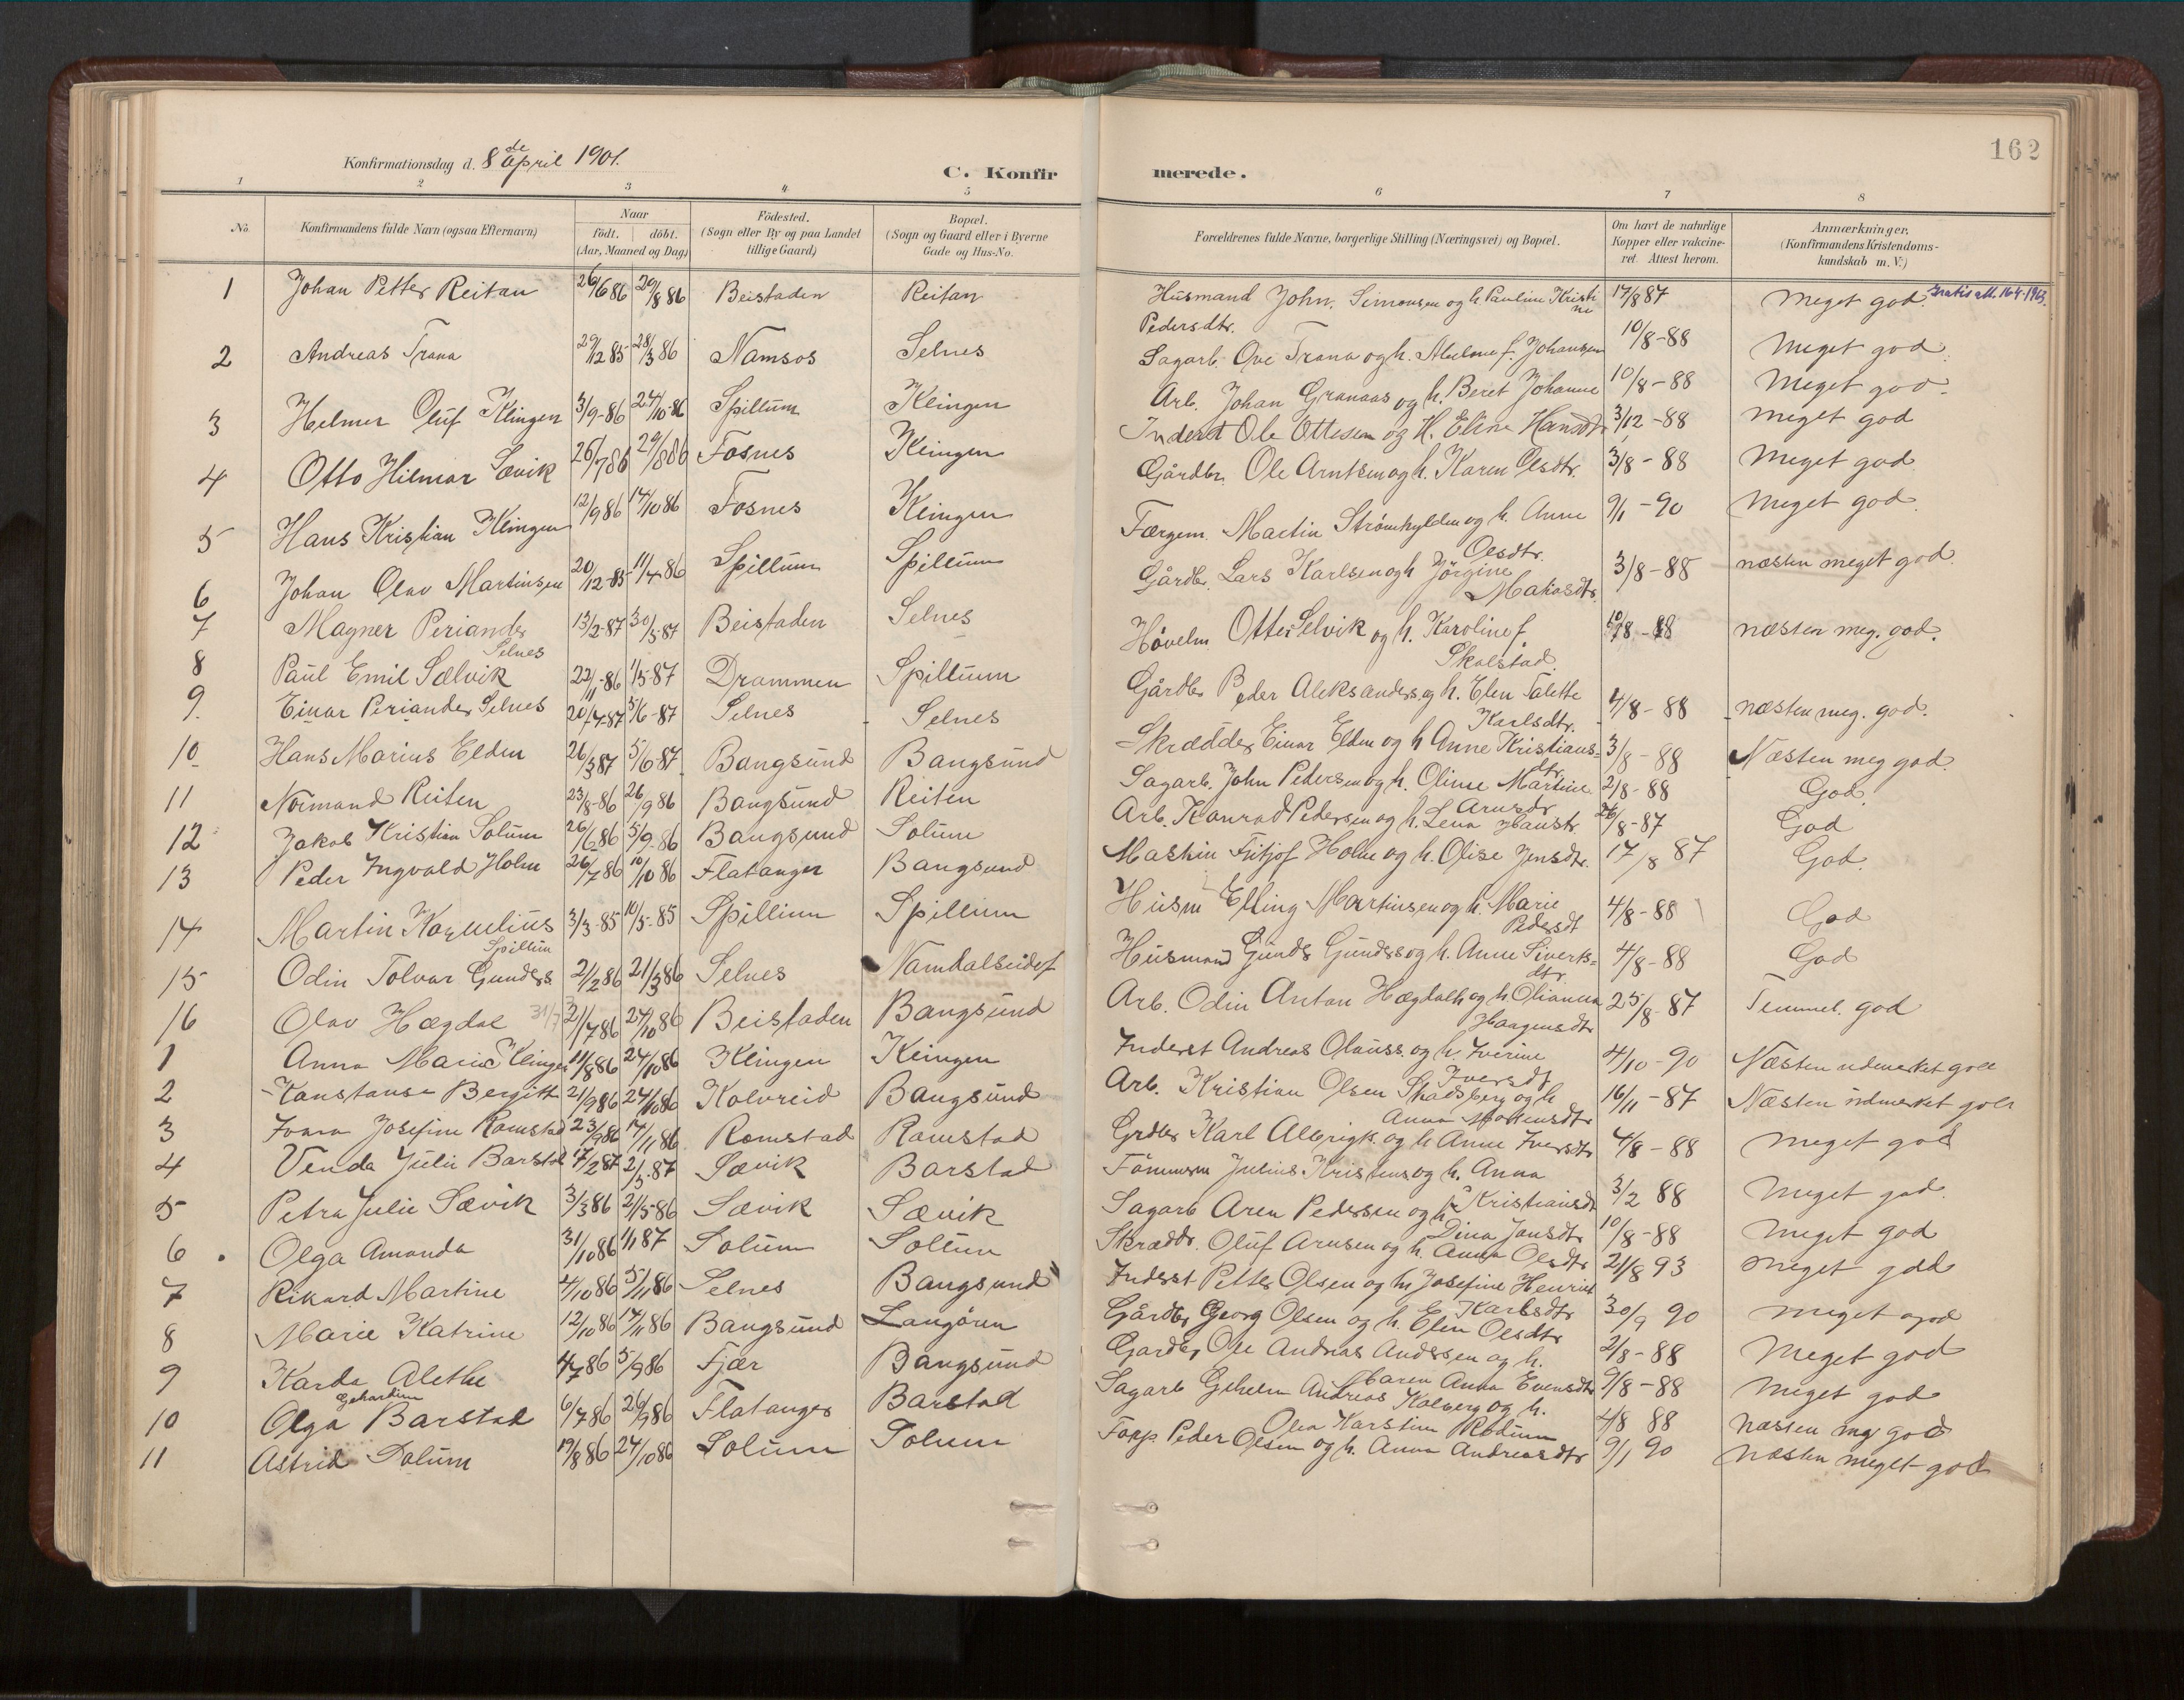 162
Konfirmationsdag d. 8de April 1901.
C. Konfirmerede.
1 2 3 4 5 6 7 8
No. Konfirmandens fulde Navn (ogsaa Efternavn) Naar födt. döbt. (Aar, Maaned og Dag) Födested. (Sogn eller By og paa Landet tillige Gaard) Bopæl. (Sogn og Gaard eller i Byerne Gade og Hus-No. Forældrenes fulde Navne, borgerlige Stilling (Næringsvei) og Bopæl. Om havt de naturlige Kopper eller vakcineret. Attest herom. Anmærkninger. (Konfirmandens Kristendomskundskab m. V.)
1 Johan Petter Reitan 26/6 86 29/8 86 Beistaden Reitan Husmand John. Simonsen og h. Pauline Kristine Pedersdtr. 17/8 87 Meget god. Gratis att. 16.4.1963.
2 Andreas Trana 29/12 85 28/3 86 Namsos Selnes Sagarb. Ove Trana og h. f. Johansen 10/8-88 Meget god.
3 Helmer Oluf Klingen 3/9-86 24/10-86 Spillum Klingen Arb. Johan Granaas og h. Beret Johanne 10/8-88 Meget god.
4 Otto Hilmar Sævik 26/7 86 29/8 86 Fosnes Klingen Inderst Ole Ottesen og H. Eline Hansdtr 3/12-88 Meget god
5 Hans Kristian Klingen 12/9 86 17/10 86 Fosnes Klingen Gårdbr. Ole Arntsen og h. Karen Olsdtr. 3/8-88 Meget god.
6 Johan Olav Martinsen 20/12-85 11/4-86 Spillum Spillum Færgem. Martin Strømhylden og h. Anne Olsdtr. 9/1-90 Meget god.
7 Magner Periander Selnes 13/2-87 30/5-87 Beistaden Selnes Gårdbr. Lars Karlsen og h Jörgine 3/8-88 næsten meget god.
8 Paul Emil Sælvik 22/11-86 1/5-87 Drammen Spillum Hövelm Otto Selvik og h. Karoline f. Skalstad. 10/8-88 næsten meg. god.
9. Einar Periander Selnes 20/4-87 5/6-87 Selnes Selnes Gårdbr Peder Aleksanders og h. Elen Talette Karlsdtr. 4/8-88 næsten meg. god.
10 Hans Marius Elden 26/3 87 5/6-87 Bangsund Bangsund Skrædder Einar Elden og h Anne Kristiansdtr. 3/8-88 Næsten meg god.
11 Normand Reiten 23/8-86 26/9 86 Bangsund Reiten Sagarb. John Pedersen og h. Oline Martine Arnsdr 2/8-88 God.
12 Jakob Kristian Solum 26/6 86 5/9-86 Bangsund Solum Arb. Konrad Pedersen og h. Lena Hanstr. 26/8-87 God
13 Peder Ingvald Holm 26/7 86 10/10 86 Flatanger Bangsund Maskin Fritjof Holm og h. Olise Jensdtr. 17/8 87 God.
14 Martin Kornelius Spillum 3/3-85 10/5-85 Spillum Spillum Husm Elling Martinsen og h. Marie Pedersdt 4/8-88 God
15 Odin Tolvar Gunders. 2/2 86 21/3 86 Selnes Namdalseidet Husmand Gunds Gunders og h. Anne Sivertsdtr 4/8-88 God
16 Olav Hægdal 31/7 21/7 86 24/10 86 Beistaden Bangsund Arb. Odin Anton Hægdal og h Olianna Haagensdtr 25/8-87 Temmel. god
1 Anna Marie Klingen 11/8 86 24/10 86 Klingen Klingen Inderst Andreas Olauss. og h. Iverine Iversdt 4/10-90 Næsten udmerket god
2 Konstanse Bergitte 21/9 86 24/10 86 Kolvreid Bangsund Arb. Kristian Olsen Skadsberg og h Anna Mortensdtr 16/11-87 Næsten udmerket god
3 Ivara Josefine Ramstad 23/9 86 14/11 86 Ramstad Ramstad Grdbr Karl Albrigt. og h Anne Iversdtr 4/8-88 Meget god
4 Venda Julie Barstad 17/2 87 2/5-87 Sævik Barstad Tömmerm Julius Kristens og h. Anna Kristiansdt 3/2 88 Meget god.
5 Petra Julie Sævik 3/3 86 2/5-86 Sævik Sævik Sagarb Aren Pedersen og h. Dina Jansdtr 10/8-88 Meget god
6 Olga Amanda 31/10 86 1/1 87 Solum Solum Skrædr. Oluf Arnsen og h. Anna Olsdtr 21/8 93 Meget god
7 Rikard Martine 4/10 86 5/11 86 Selnes Bangsund Inderst Petter Olsen og h. Josefine Henriet Karlsdtr 30/9 90 Meget god
8 Marie Katrine 12/10 86 14/11 86 Bangsund Langören Gårdbr Georg Olsen og h. Elen Olsdtr 2/8-88 Meget god
9 Karda Alethe 4/7 86 5/9 86 Fjær Bangsund Gardbr Ole Andreas Anderssen og h. Maren Anna Evensdtr 9/8-88 Meget god
10 Olga Gehardine Barstad 6/7 86 26/9 86 Flatanger Barstad Sagarb Gehelm Andreas Kolberg og h. Olea Karstine Rödum 4/8 88 næsten meg god
11 Astrid Solum 19/8 86 24/10 86 Solum Solum Peder Olsen og h. Anna Andreasdtr 9/1 90 næsten meget god